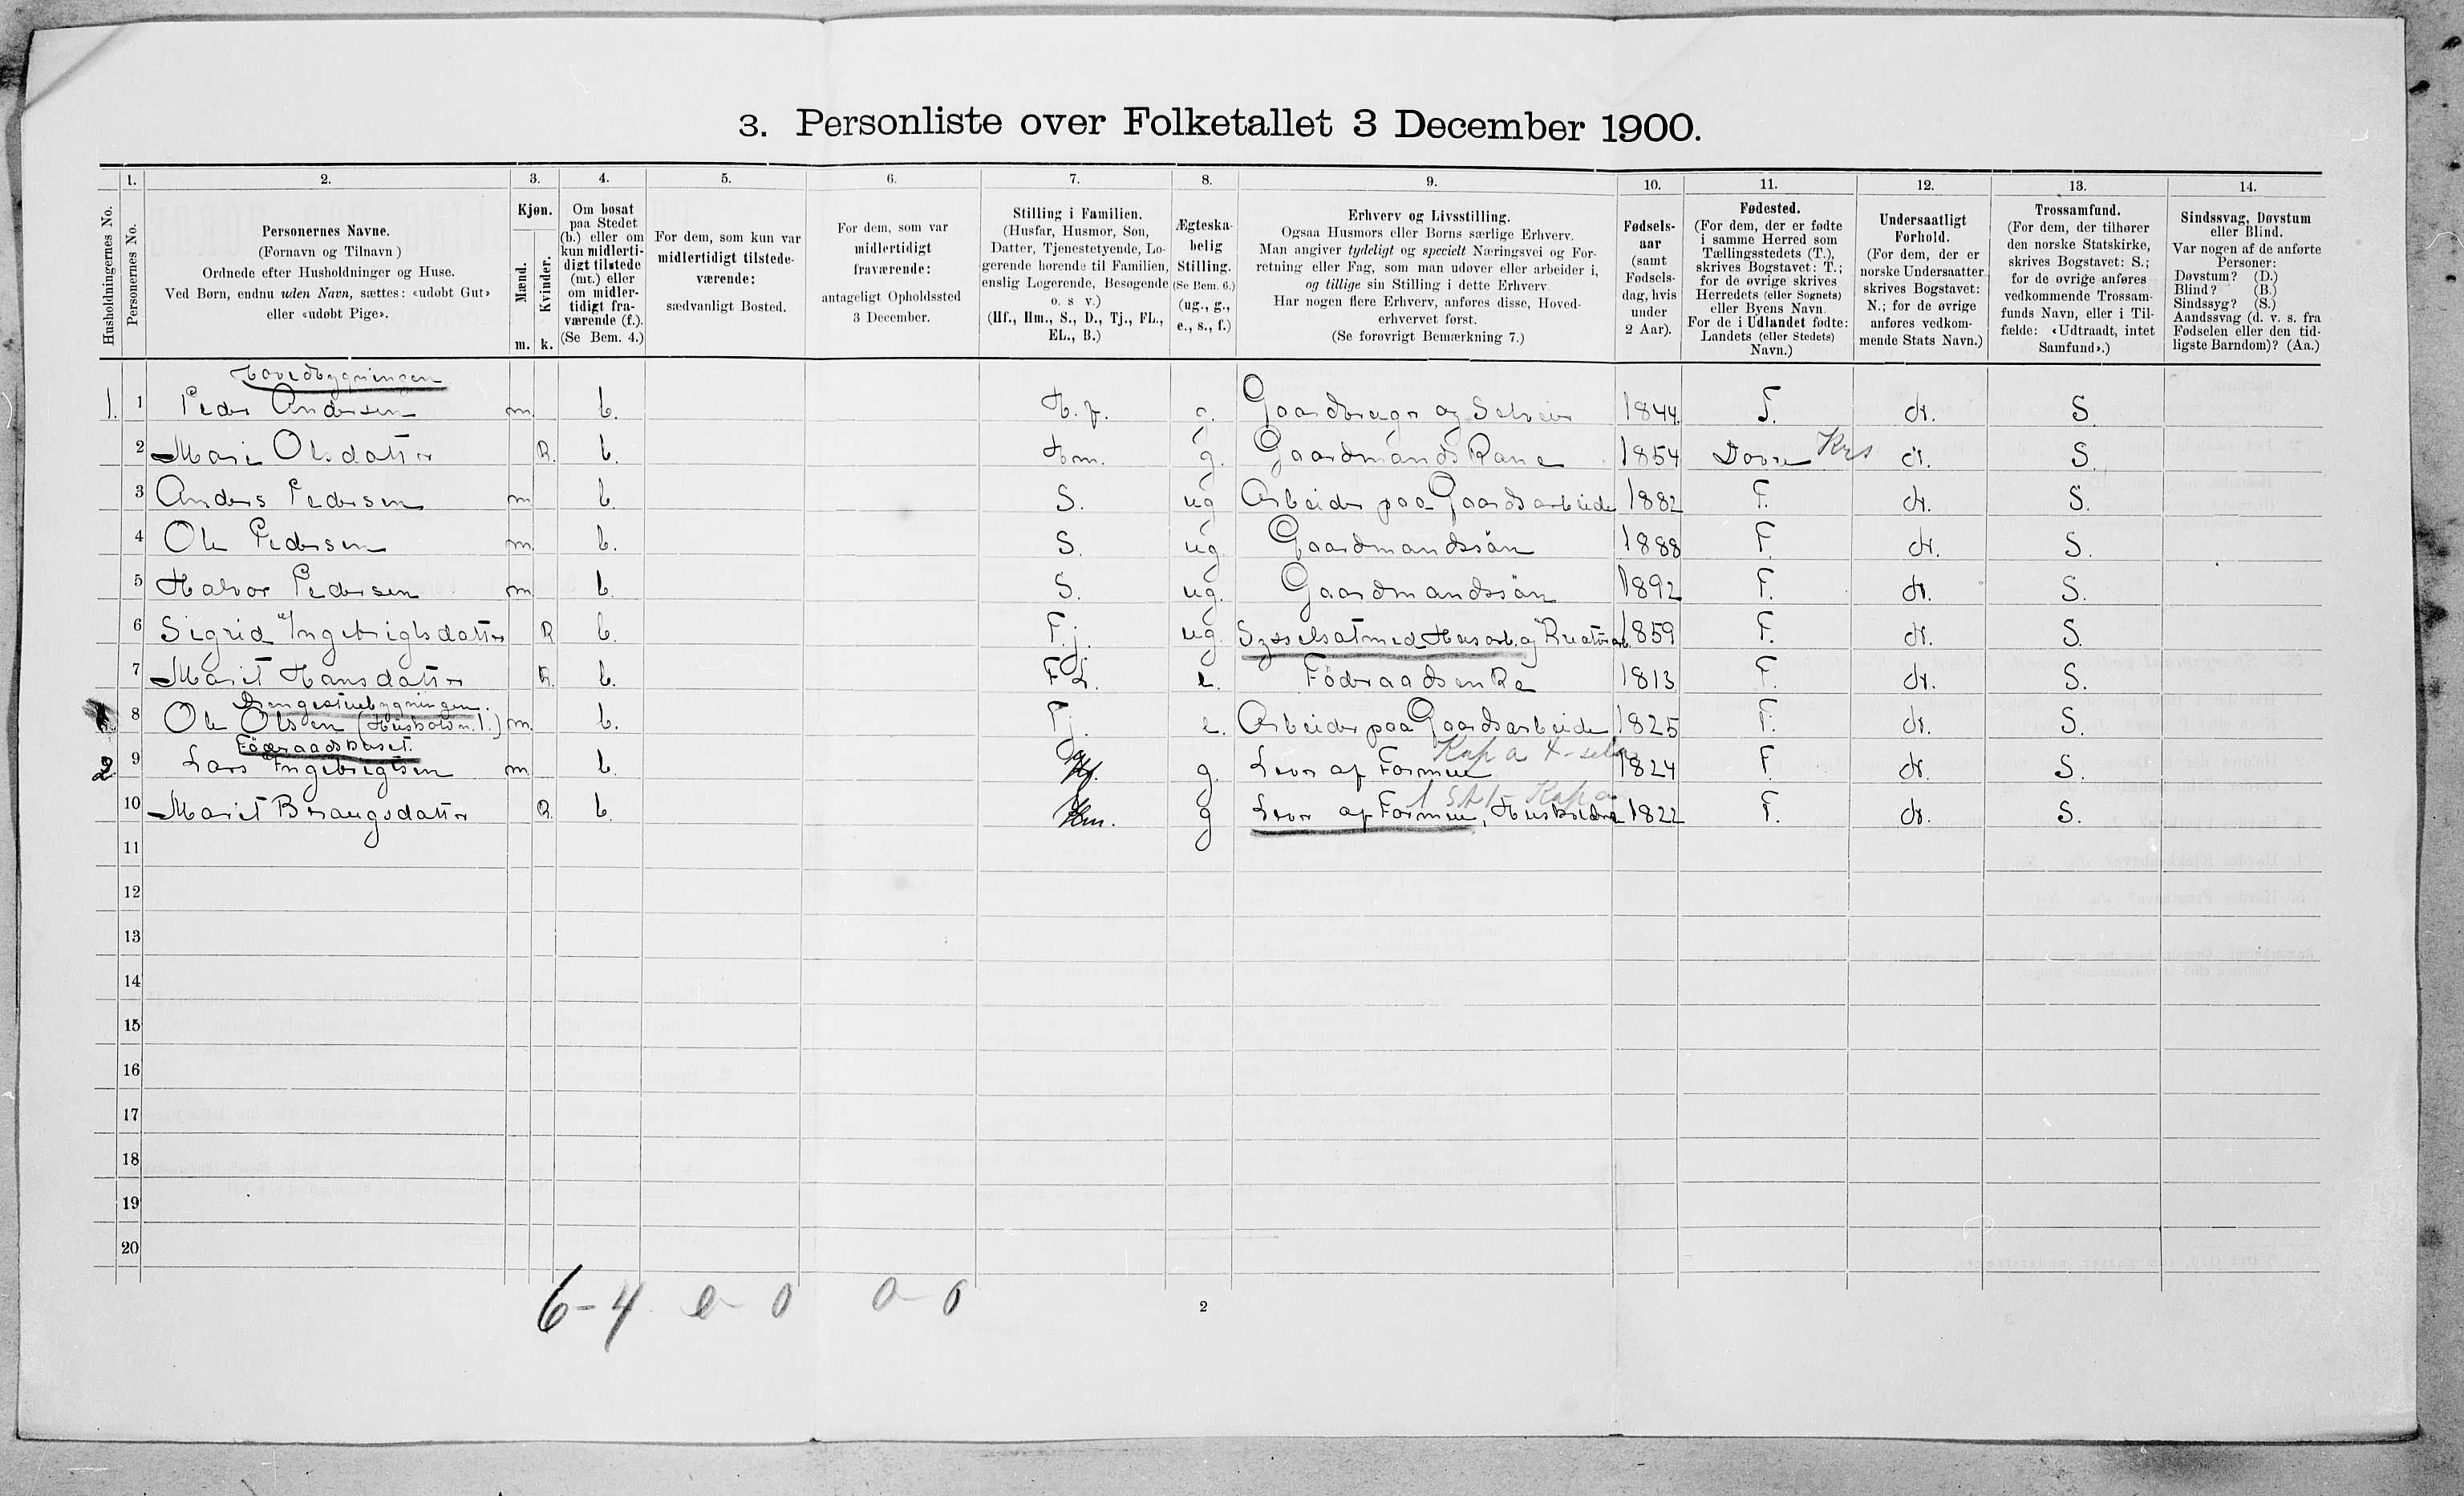 3. Personliste over Folketallet 3 December 1900.
Husholdningernes No.
1.
Personernes No.
2.
Personernes Navne.
(Fornavn og Tilnavn)
Ordnede efter Husholdninger og Huse.
Ved Børn, endnu uden Navn, sættes: «udøbt Gut»
eller «udøbt Pige».
3.
Kjøn.
Mænd.
Kvinder.
m. k.
4.
Om bosat
paa Stedet
(b.) eller om
kun midlerti-
digt tilstede
(mt.) eller
om midler-
tidigt fra-
værende (f.).
(Se Bem. 4.)
5.
For dem, som kun var
midlertidigt tilstede-
værende:
sædvanligt Bosted.
6.
For dem, som var
midlertidigt
fraværende:
antageligt Opholdssted
3 December.
7.
Stilling i Familien.
(Husfar, Husmor, Søn,
Datter, Tjenestetyende, Lo-
gerende hørende til Familien,
enslig Logerende, Besøgende
o. s v.)
(Hf., Hm., S., D., Tj., FL.,
EL., B.)
8.
Ægteska-
belig
Stilling.
(Se Bem. 6.)
(ug., g.,
e., s., f.)
9.
Erhverv og Livsstilling.
Ogsaa Husmors eller Børns særlige Erhverv.
Man angiver tydeligt og specielt Næringsvei og For-
retning eller Fag, som man udøver eller arbeider i,
og tillige sin Stilling i dette Erhverv.
Har nogen flere Erhverv, anføres disse, Hoved-
erhvervet først.
(Se forøvrigt Bemærkning 7.)
10.
Fødsels-
aar
(samt
Fødsels-
dag, hvis
under
2 Aar).
11.
Fødested.
(For dem, der er fødte
i samme Herred som
Tællingsstedets (T.),
skrives Bogstavet: T.;
for de øvrige skrives
Herredets (eller Sognets)
eller Byens Navn.
For de i Udlandet fødte:
Landets (eller Stedets)
Navn.)
12.
Undersaatligt
Forhold.
(For dem, der er
norske Undersaatter
skrives Bogstavet:
N.; for de øvrige
anføres vedkom-
mende Stats Navn.)
13.
Trossamfund.
(For dem, der tilhører
den norske Statskirke,
skrives Bogstavet: S.;
for de øvrige anføres
vedkommende Trossam-
funds Navn, eller i Til-
fælde: «Udtraadt, intet
Samfund».)
14.
Sindssvag, Døvstum
eller Blind.
Var nogen af de anførte
Personer:
Døvstum? (D.)
Blind? (B.)
Sindssyg? (S.)
Aandssvag (d. v. s. fra
Fødselen eller den tid-
ligste Barndom)? (Aa.)
Hovedbygningen
1. 1 Peder Andersen m. b. H.f. g. Gaardbruger og Selveier 1844. T. N. S.
2 Mari Olsdatter k. b. Hm. g. Gaardmandskone 1854 Dovre Krs N. S.
3 Anders Pedersen m b. S. ug Arbeider paa Gaardsarbeide 1882 T. N. S.
4 Ole Pedersen m b. S. ug. Gaardmandssön 1888 T. N. S.
5 Halvor Pedersen m b. S. ug. Gaardmandssön 1892 T. N. S.
6 Sigrid Ingebrigtsdatter k b. Tj. ug. Sysselsat med Husarb. og Kreaturarb. 1859 T. N. S.
7 Marit Hansdatter k. b. FL. e. Föderaadsenke 1813 T. N. S.
Drengestuebygningen.
8 Ole Olsen (Hushold n. 1.) m. b. Tj. e. Arbeider paa Gaardsarbeide 1825 T. N. S.
Föderaadshuset.
2. 9 Lars Ingebrigtsen m. b. Hf. g. Lever af Formue Kap a 1824 T. N. S.
10 Marit Brangsdatter k. b. Hm. g Lever af Formue, Husholdn. Kap a 1822 T. N. S.
11
12
13
14
15
16
17
18
19
20
6-4 0-0 0-0
2